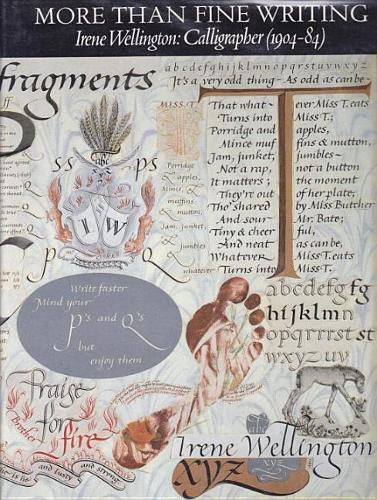 MORE THAN FINE WRITING
Irene Wellington: Calligrapher (1904-84)
fragments
a b c d e f g h i j k l m n o p q r s t u v w x y z
It's a very odd thing - As odd as can be -
MISS·T·
T
That what - ever Miss T. eats
Turns into Miss T.;
Porridge and apples,
Mince, muf fins & mutton,
Jam, junket, jumbles -
Not a rap, not a button
It matters; the moment
They're out of her plate;
Tho' shared by Miss Butcher
And sour Mr. Bate;
Tiny & cheer ful,
And neat as can be,
Whatever Miss T. eats
Turns into Miss T.
Porridge
& apples,
Mince,
muffins
& mutton,
Jam,
junket,
Jumbles
whatever
abc
xyz
ss
ps
I W
Write faster
Mind your
P's and Q's
but
enjoy them
abcdefg fg
hijklmn
opqrrrst st
wxyz uv
Praise
for
fire
Brother
and lusty and strong
abc
Irene Wellington
xyz
xyz